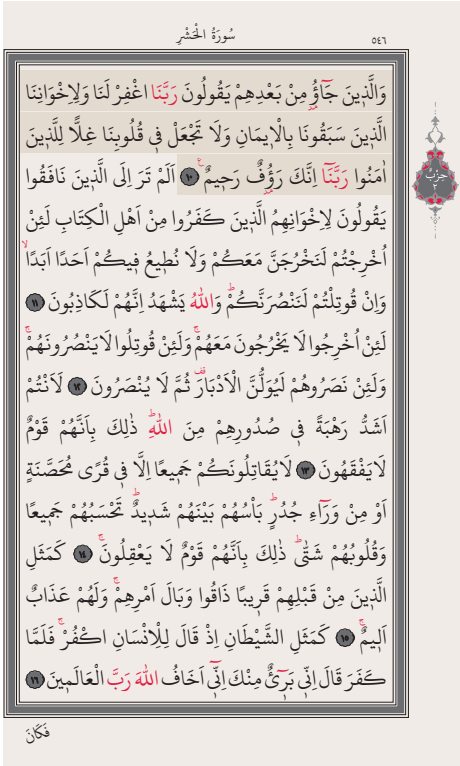 ٥٤٦
سُورَةُ الْحَشْرِ
وَالَّذ۪ينَ جَٓاؤُ۫ مِنْ بَعْدِهِمْ يَقُولُونَ رَبَّنَا اغْفِرْ لَنَا وَلِاِخْوَانِنَا
الَّذ۪ينَ سَبَقُونَا بِالْا۪يمَانِ وَلَا تَجْعَلْ ف۪ي قُلُوبِنَا غِلًّا لِلَّذ۪ينَ
اٰمَنُوا رَبَّنَٓا اِنَّكَ رَؤُ۫فٌ رَح۪يمٌ۟ ١٠ اَلَمْ تَرَ اِلَى الَّذ۪ينَ نَافَقُوا
يَقُولُونَ لِاِخْوَانِهِمُ الَّذ۪ينَ كَفَرُوا مِنْ اَهْلِ الْكِتَابِ لَئِنْ
اُخْرِجْتُمْ لَنَخْرُجَنَّ مَعَكُمْ وَلَا نُط۪يعُ ف۪يكُمْ اَحَدًا اَبَدًاۙ
وَاِنْ قُوتِلْتُمْ لَنَنْصُرَنَّكُمْۜ وَاللّٰهُ يَشْهَدُ اِنَّهُمْ لَكَاذِبُونَ ١١
لَئِنْ اُخْرِجُوا لَا يَخْرُجُونَ مَعَهُمْۚ وَلَئِنْ قُوتِلُوا لَا يَنْصُرُونَهُمْۚ
وَلَئِنْ نَصَرُوهُمْ لَيُوَلُّنَّ الْاَدْبَارَ۠ ثُمَّ لَا يُنْصَرُونَ ١٢ لَاَنْتُمْ
اَشَدُّ رَهْبَةً ف۪ي صُدُورِهِمْ مِنَ اللّٰهِۜ ذٰلِكَ بِاَنَّهُمْ قَوْمٌ
لَا يَفْقَهُونَ ١٣ لَا يُقَاتِلُونَكُمْ جَم۪يعًا اِلَّا ف۪ي قُرًى مُحَصَّنَةٍ
اَوْ مِنْ وَرَٓاءِ جُدُرٍۜ بَاْسُهُمْ بَيْنَهُمْ شَد۪يدٌۜ تَحْسَبُهُمْ جَم۪يعًا
وَقُلُوبُهُمْ شَتّٰىۜ ذٰلِكَ بِاَنَّهُمْ قَوْمٌ لَا يَعْقِلُونَۚ ١٤ كَمَثَلِ
الَّذ۪ينَ مِنْ قَبْلِهِمْ قَر۪يبًا ذَاقُوا وَبَالَ اَمْرِهِمْۚ وَلَهُمْ عَذَابٌ
اَل۪يمٌۚ ١٥ كَمَثَلِ الشَّيْطَانِ اِذْ قَالَ لِلْاِنْسَانِ اكْفُرْۚ فَلَمَّا
كَفَرَ قَالَ اِنّ۪ي بَر۪ٓيءٌ مِنْكَ اِنّ۪ٓي اَخَافُ اللّٰهَ رَبَّ الْعَالَم۪ينَ ١٦
حِزْبٌ
٢
فَكَانَ